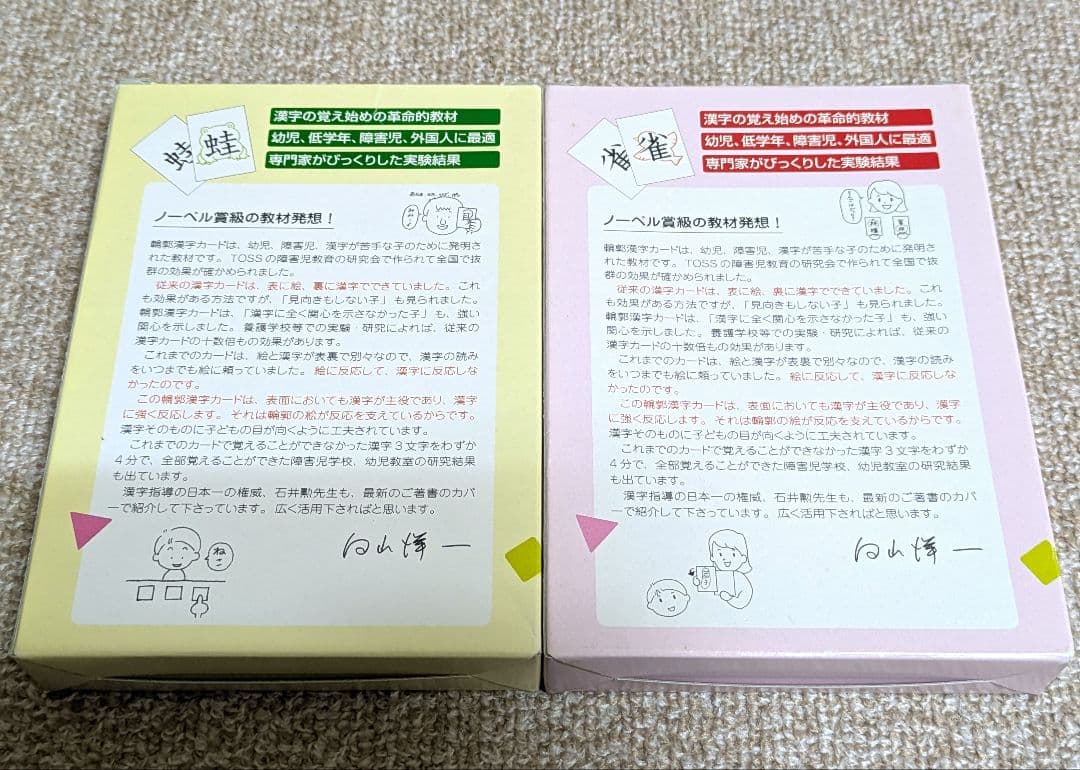 蛙
蛙
漢字の覚え始めの革命的教材
幼児、低学年、障害児、外国人に最適
専門家がびっくりした実験結果
ノーベル賞級の教材発想！
輪郭漢字カードは、幼児、障害児、漢字が苦手な子のために発明さ
れた教材です。TOSSの障害児教育の研究会で作られて全国で抜
群の効果が確かめられました。
従来の漢字カードは、表に絵、裏に漢字でできていました。これ
も効果がある方法ですが、「見向きもしない子」も見られました。
輪郭漢字カードは、「漢字に全く関心を示さなかった子」も、強い
関心を示しました。養護学校等での実験・研究によれば、従来の
漢字カードの十数倍もの効果があります。
これまでのカードは、絵と漢字が表裏で別々なので、漢字の読み
をいつまでも絵に頼っていました。絵に反応して、漢字に反応しな
かったのです。
この輪郭漢字カードは、表面においても漢字が主役であり、漢字
に強く反応します。それは輪郭の絵が反応を支えているからです。
漢字そのものに子どもの目が向くように工夫されています。
これまでのカードで覚えることができなかった漢字３文字をわずか
４分で、全部覚えることができた障害児学校、幼児教室の研究結果
も出ています。
漢字指導の日本一の権威、石井勲先生も、最新のご著書のカバ
ーで紹介して下さっています。広く活用下さればと思います。
ねこ
向山洋一
雀
雀
漢字の覚え始めの革命的教材
幼児、低学年、障害児、外国人に最適
専門家がびっくりした実験結果
ノーベル賞級の教材発想！
輪郭漢字カードは、幼児、障害児、漢字が苦手な子のために発明さ
れた教材です。TOSSの障害児教育の研究会で作られて全国で抜
群の効果が確かめられました。
従来の漢字カードは、表に絵、裏に漢字でできていました。これ
も効果がある方法ですが、「見向きもしない子」も見られました。
輪郭漢字カードは、「漢字に全く関心を示さなかった子」も、強い
関心を示しました。養護学校等での実験・研究によれば、従来の
漢字カードの十数倍もの効果があります。
これまでのカードは、絵と漢字が表裏で別々なので、漢字の読み
をいつまでも絵に頼っていました。絵に反応して、漢字に反応しな
かったのです。
この輪郭漢字カードは、表面においても漢字が主役であり、漢字
に強く反応します。それは輪郭の絵が反応を支えているからです。
漢字そのものに子どもの目が向くように工夫されています。
これまでのカードで覚えることができなかった漢字３文字をわずか
４分で、全部覚えることができた障害児学校、幼児教室の研究結果
も出ています。
漢字指導の日本一の権威、石井勲先生も、最新のご著書のカバ
ーで紹介して下さっています。広く活用下さればと思います。
向山洋一